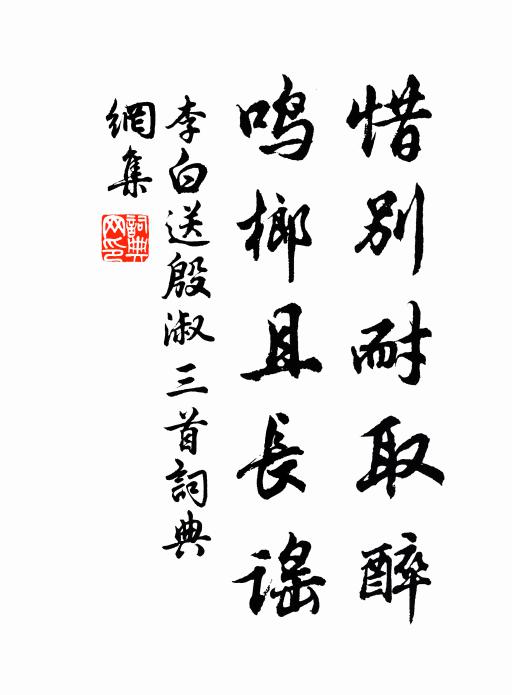 惜别耐取醉
鸣榔且長谣
李白送殷淑三首詞典
網集
詞典網印